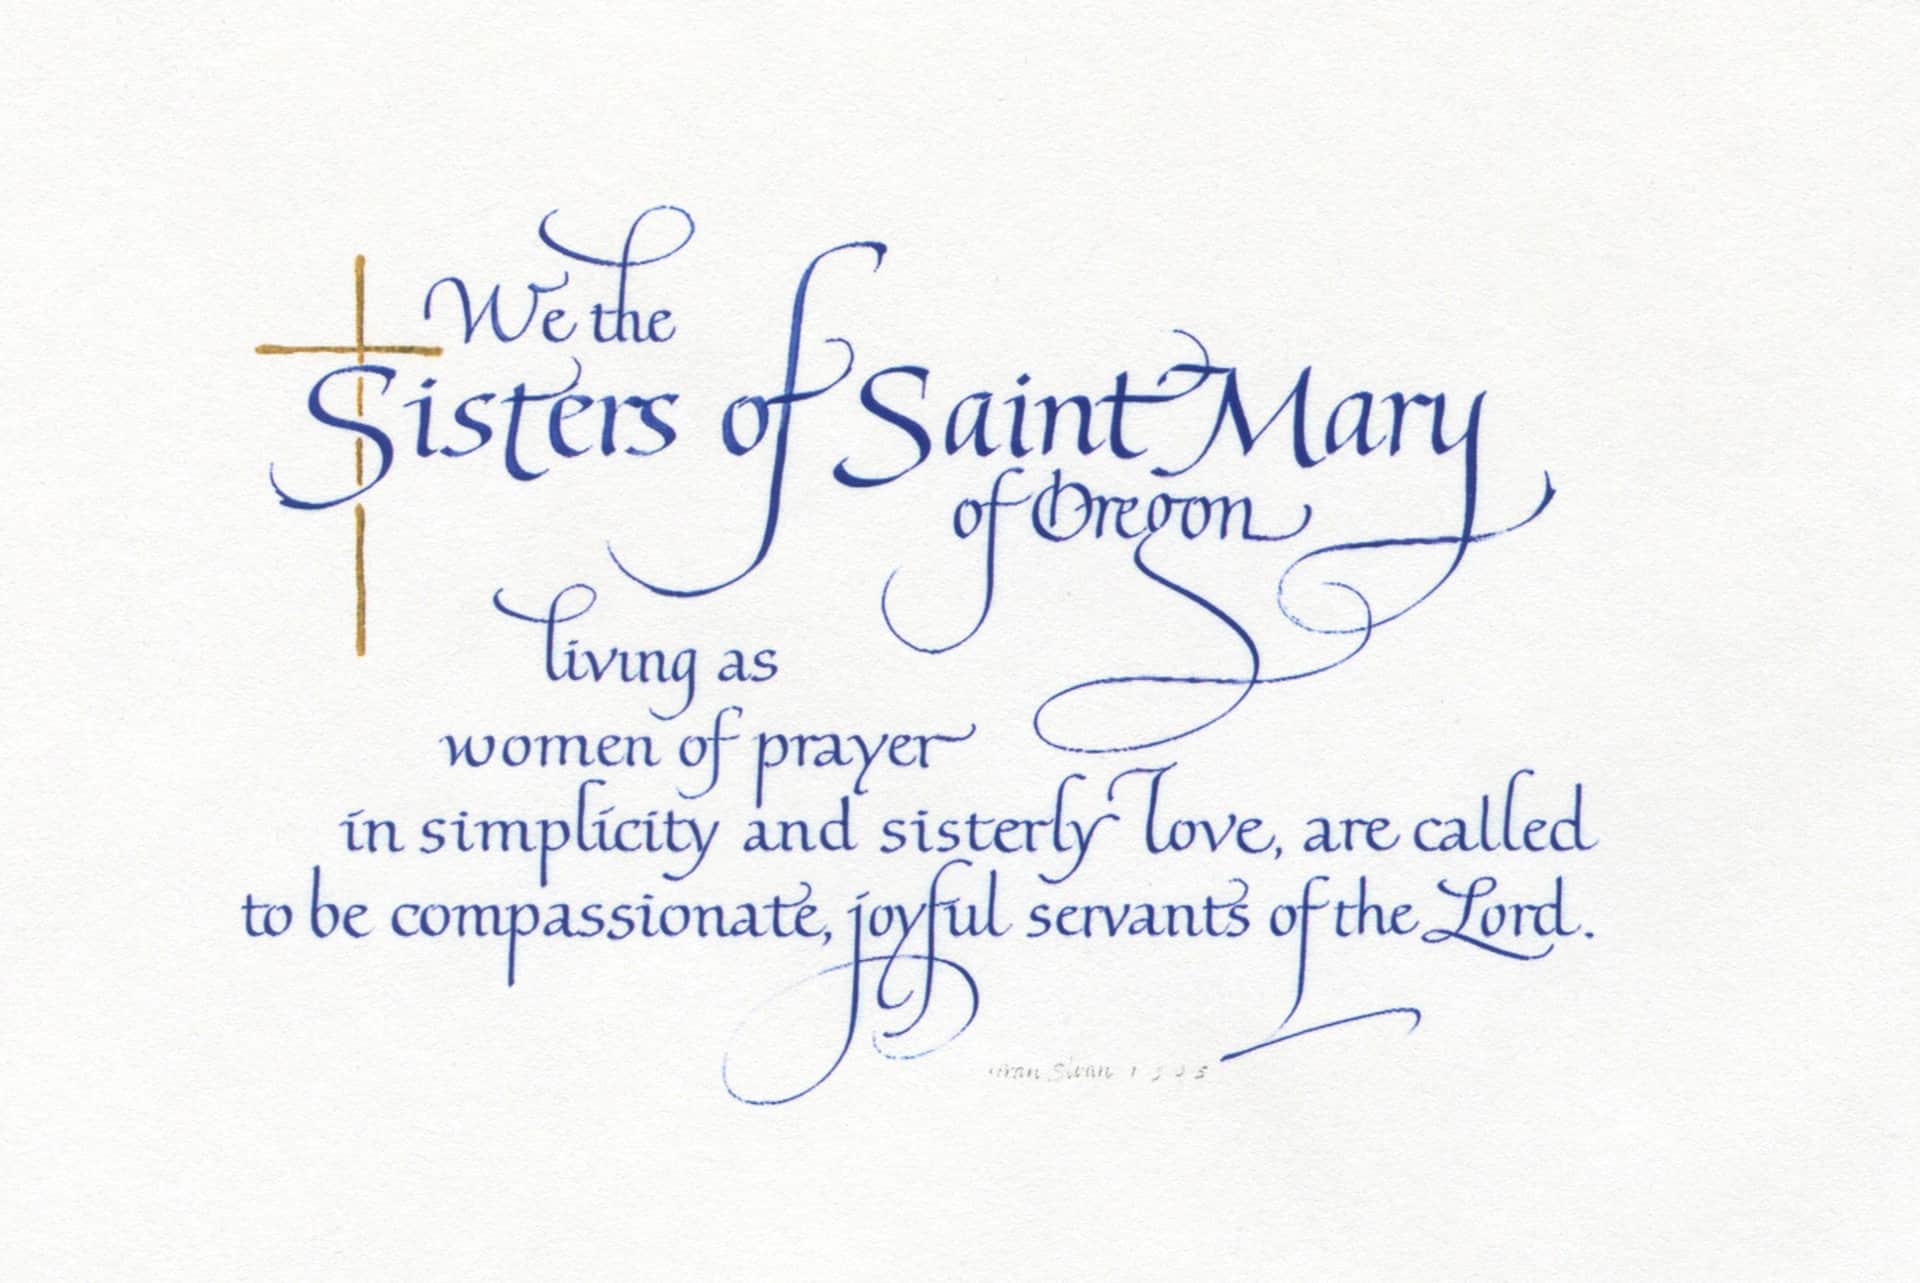 We the
Sisters of Saint Mary
of Oregon
living as
women of prayer
in simplicity and sisterly love, are called
to be compassionate, joyful servants of the Lord.
Swan